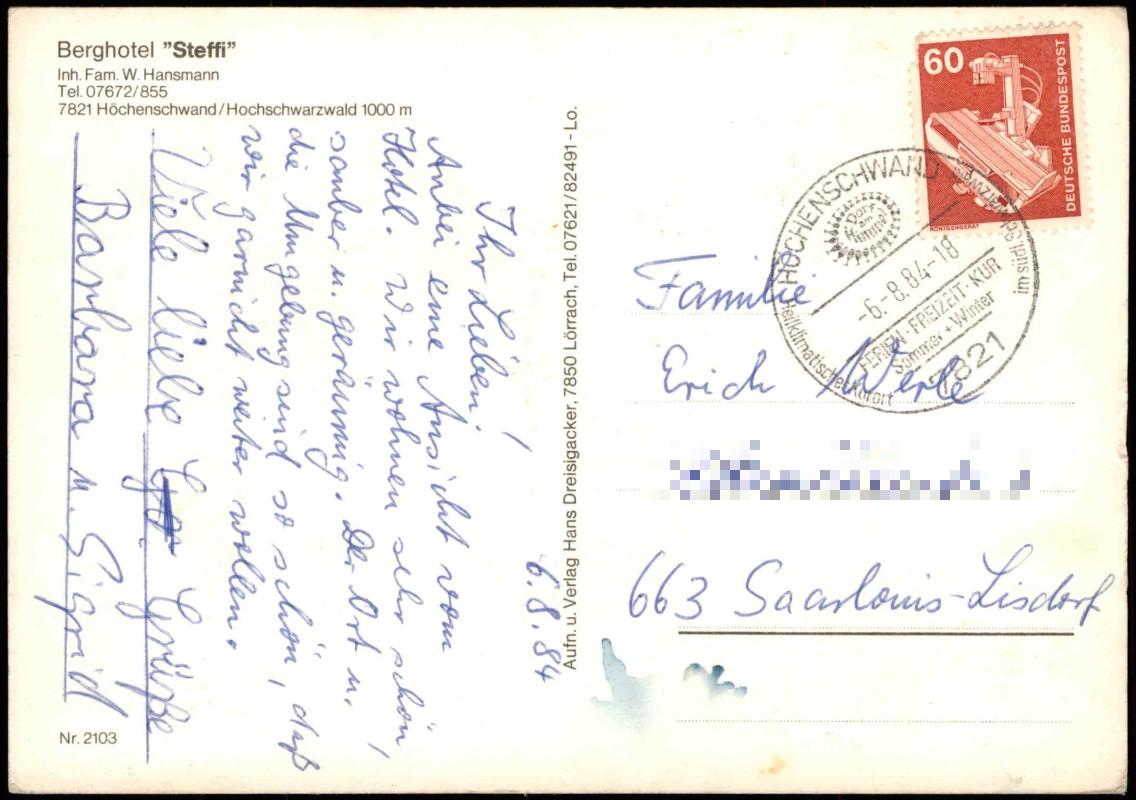 Berghotel "Steffi"
Inh. Fam. W. Hansmann
Tel. 07672/855
7821 Höchenschwand/Hochschwarzwald 1000 m
6.8.84
Ihr Lieben!
Anbei eine Ansicht vom
Hotel. Wir wohnen sehr schön,
sauber u. geräumig. Der Ort u.
die Umgebung sind so schön, daß
wir garnicht weiter wollen.
Viele liebe Grüße
Barbara u. Sigrid
Nr. 2103
Aufn. u. Verlag Hans Dreisigacker, 7850 Lörrach, Tel. 07621/82491 - Lo.
60
DEUTSCHE BUNDESPOST
RÖNTGENGERÄT
HÖCHENSCHWAND
Dorf
am
Himmel
-6.-8.84-18
FERIEN·FREIZEIT·KUR
Sommer + Winter
7821
Heilklimatischer Kurort
im südl. Schwarzwald
Familie
Erich Werle
663 Saarlouis-Lisdorf